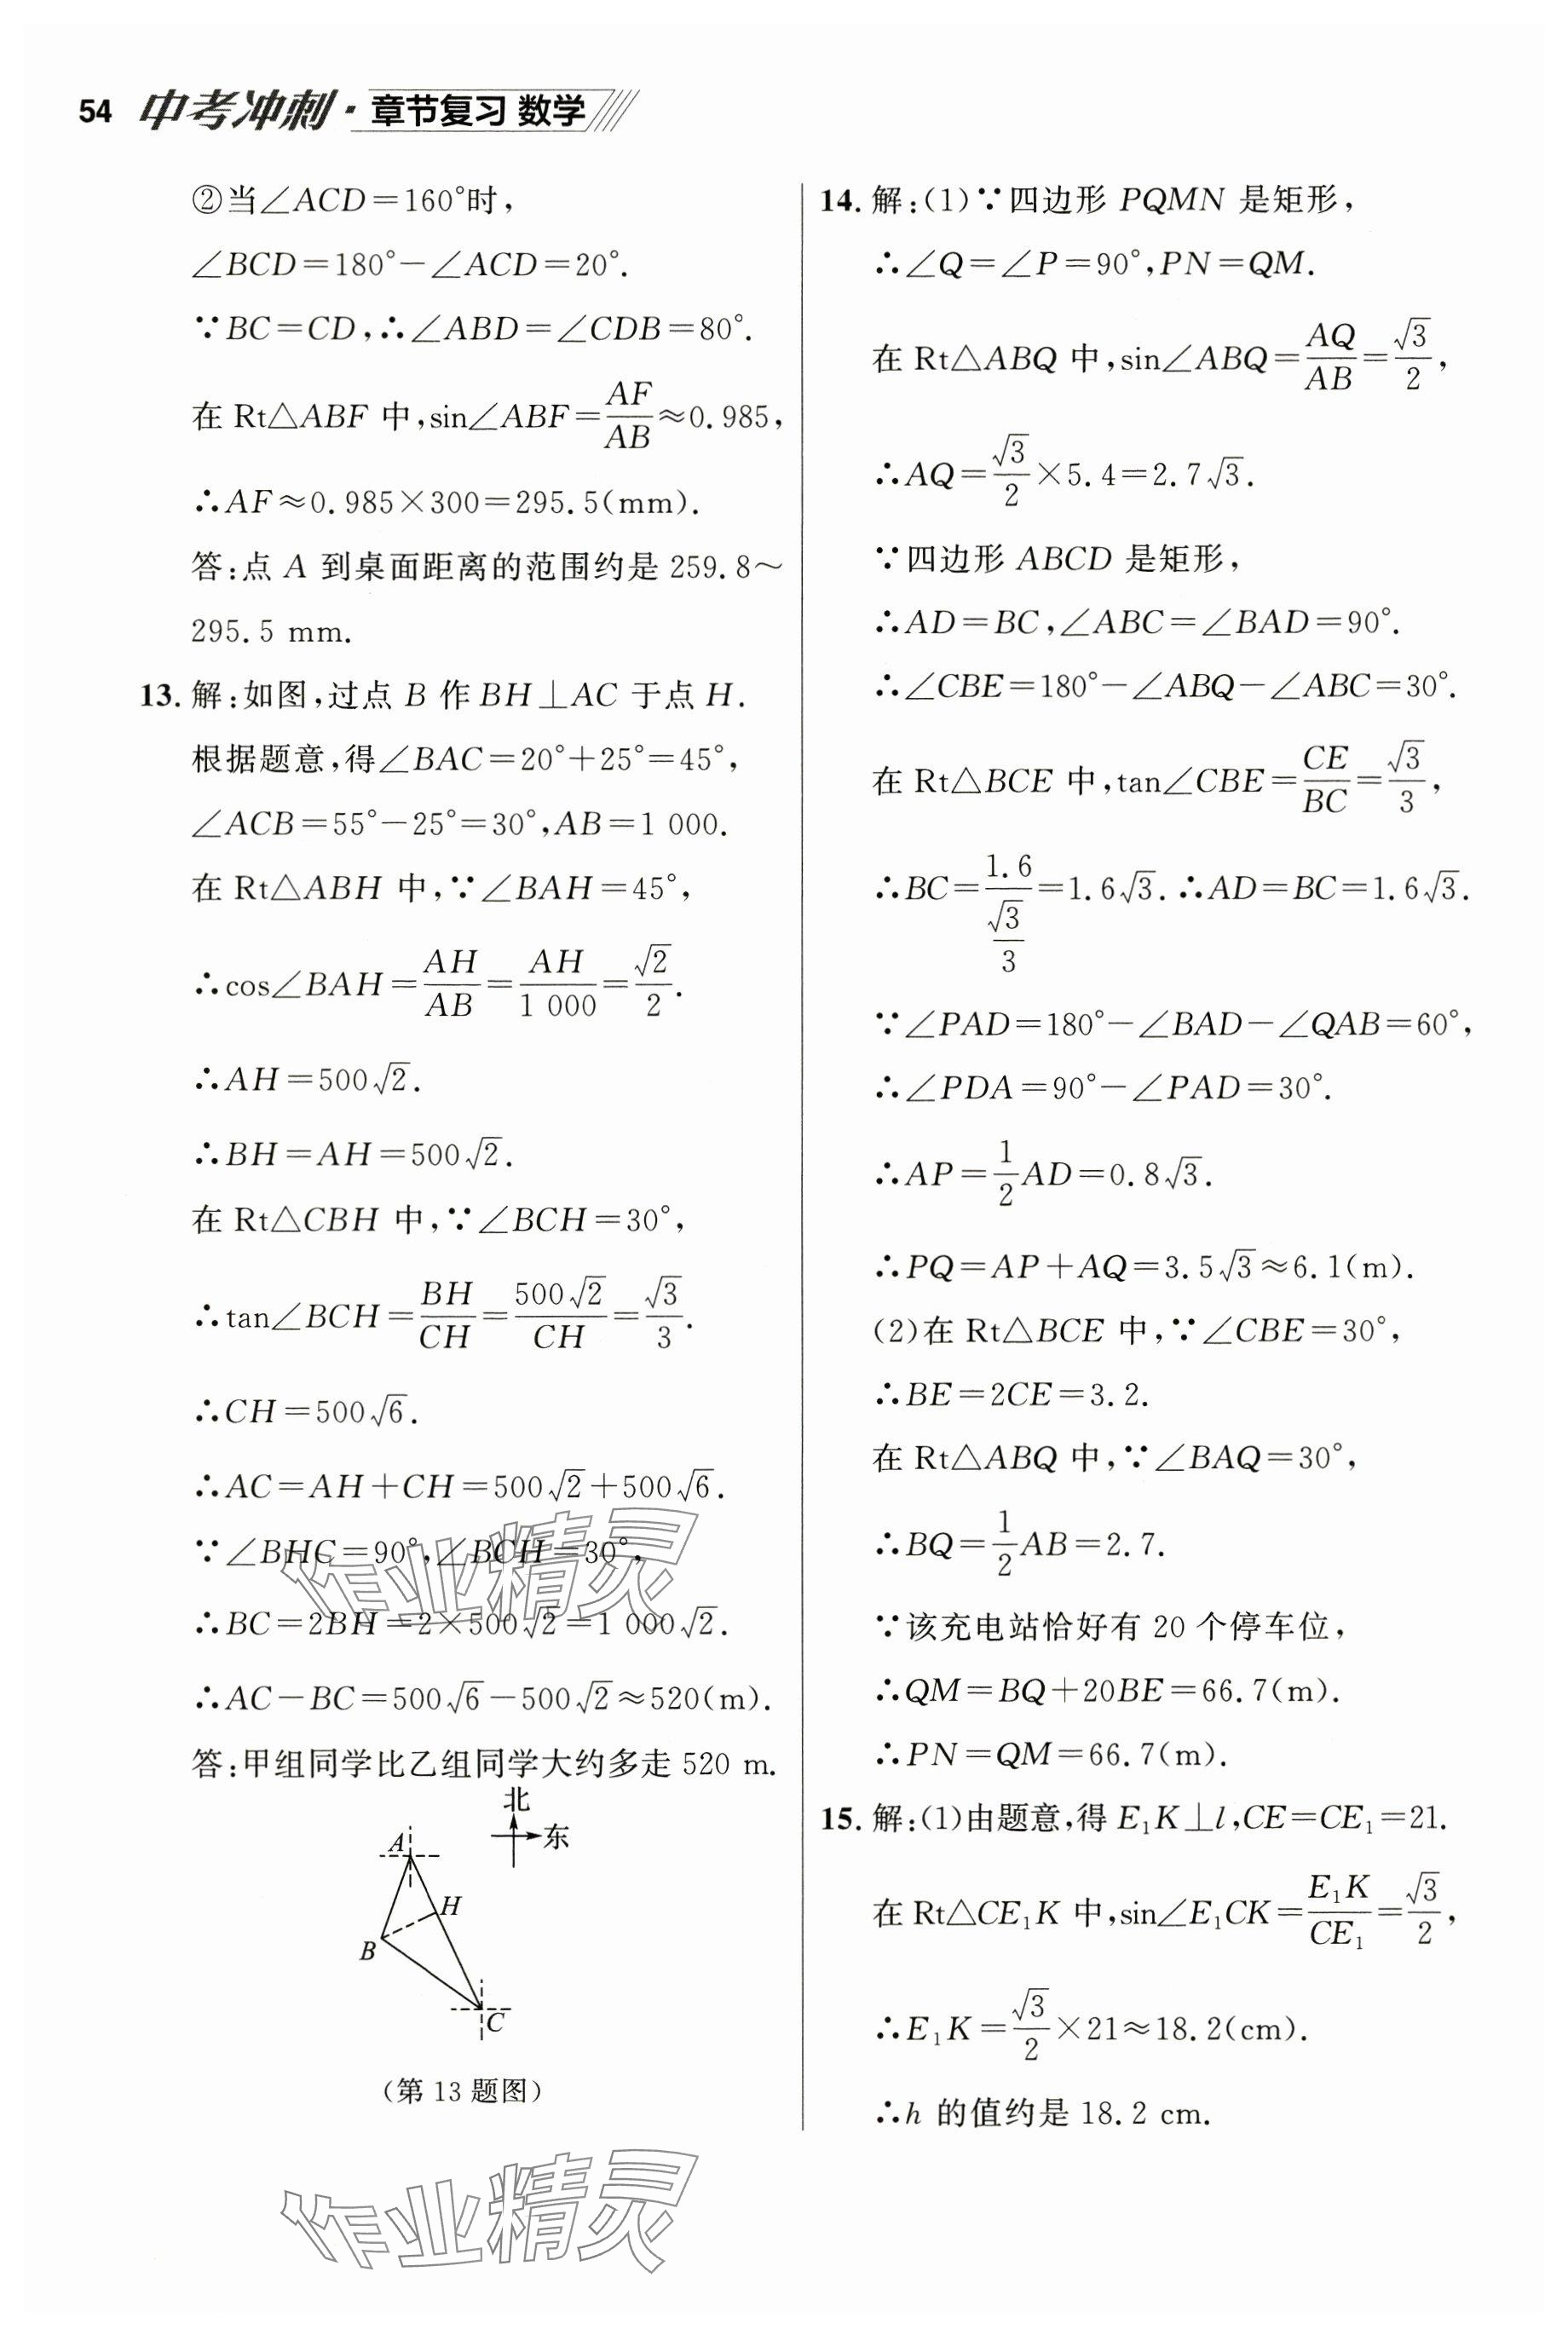 54 中考冲刺·章节复习 数学
②当∠ACD=160°时,
∠BCD=180°-∠ACD=20°.
∵BC=CD,∴∠ABD=∠CDB=80°.
在 Rt△ABF 中,sin∠ABF=AF/AB≈0.985,
∴AF≈0.985×300=295.5(mm).
答:点 A 到桌面距离的范围约是 259.8~
295.5 mm.
13. 解:如图,过点 B 作 BH⊥AC 于点 H.
根据题意,得∠BAC=20°+25°=45°,
∠ACB=55°-25°=30°,AB=1 000.
在 Rt△ABH 中,∵∠BAH=45°,
∴cos∠BAH=AH/AB=AH/1 000=√2/2.
∴AH=500√2.
∴BH=AH=500√2.
在 Rt△CBH 中,∵∠BCH=30°,
∴tan∠BCH=BH/CH=500√2/CH=√3/3.
∴CH=500√6.
∴AC=AH+CH=500√2+500√6.
∵∠BHC=90°,∠BCH=30°,
∴BC=2BH=2×500√2=1 000√2.
∴AC-BC=500√6-500√2≈520(m).
答:甲组同学比乙组同学大约多走 520 m.
北
东
A
H
B
C
(第 13 题图)
14. 解:(1)∵四边形 PQMN 是矩形,
∴∠Q=∠P=90°,PN=QM.
在 Rt△ABQ 中,sin∠ABQ=AQ/AB=√3/2,
∴AQ=√3/2×5.4=2.7√3.
∵四边形 ABCD 是矩形,
∴AD=BC,∠ABC=∠BAD=90°.
∴∠CBE=180°-∠ABQ-∠ABC=30°.
在 Rt△BCE 中,tan∠CBE=CE/BC=√3/3,
∴BC=1.6/(√3/3)=1.6√3.∴AD=BC=1.6√3.
∵∠PAD=180°-∠BAD-∠QAB=60°,
∴∠PDA=90°-∠PAD=30°.
∴AP=1/2AD=0.8√3.
∴PQ=AP+AQ=3.5√3≈6.1(m).
(2)在 Rt△BCE 中,∵∠CBE=30°,
∴BE=2CE=3.2.
在 Rt△ABQ 中,∵∠BAQ=30°,
∴BQ=1/2AB=2.7.
∵该充电站恰好有 20 个停车位,
∴QM=BQ+20BE=66.7(m).
∴PN=QM=66.7(m).
15. 解:(1)由题意,得 E₁K⊥l,CE=CE₁=21.
在 Rt△CE₁K 中,sin∠E₁CK=E₁K/CE₁=√3/2,
∴E₁K=√3/2×21≈18.2(cm).
∴h 的值约是 18.2 cm.
作业精灵
作业精灵